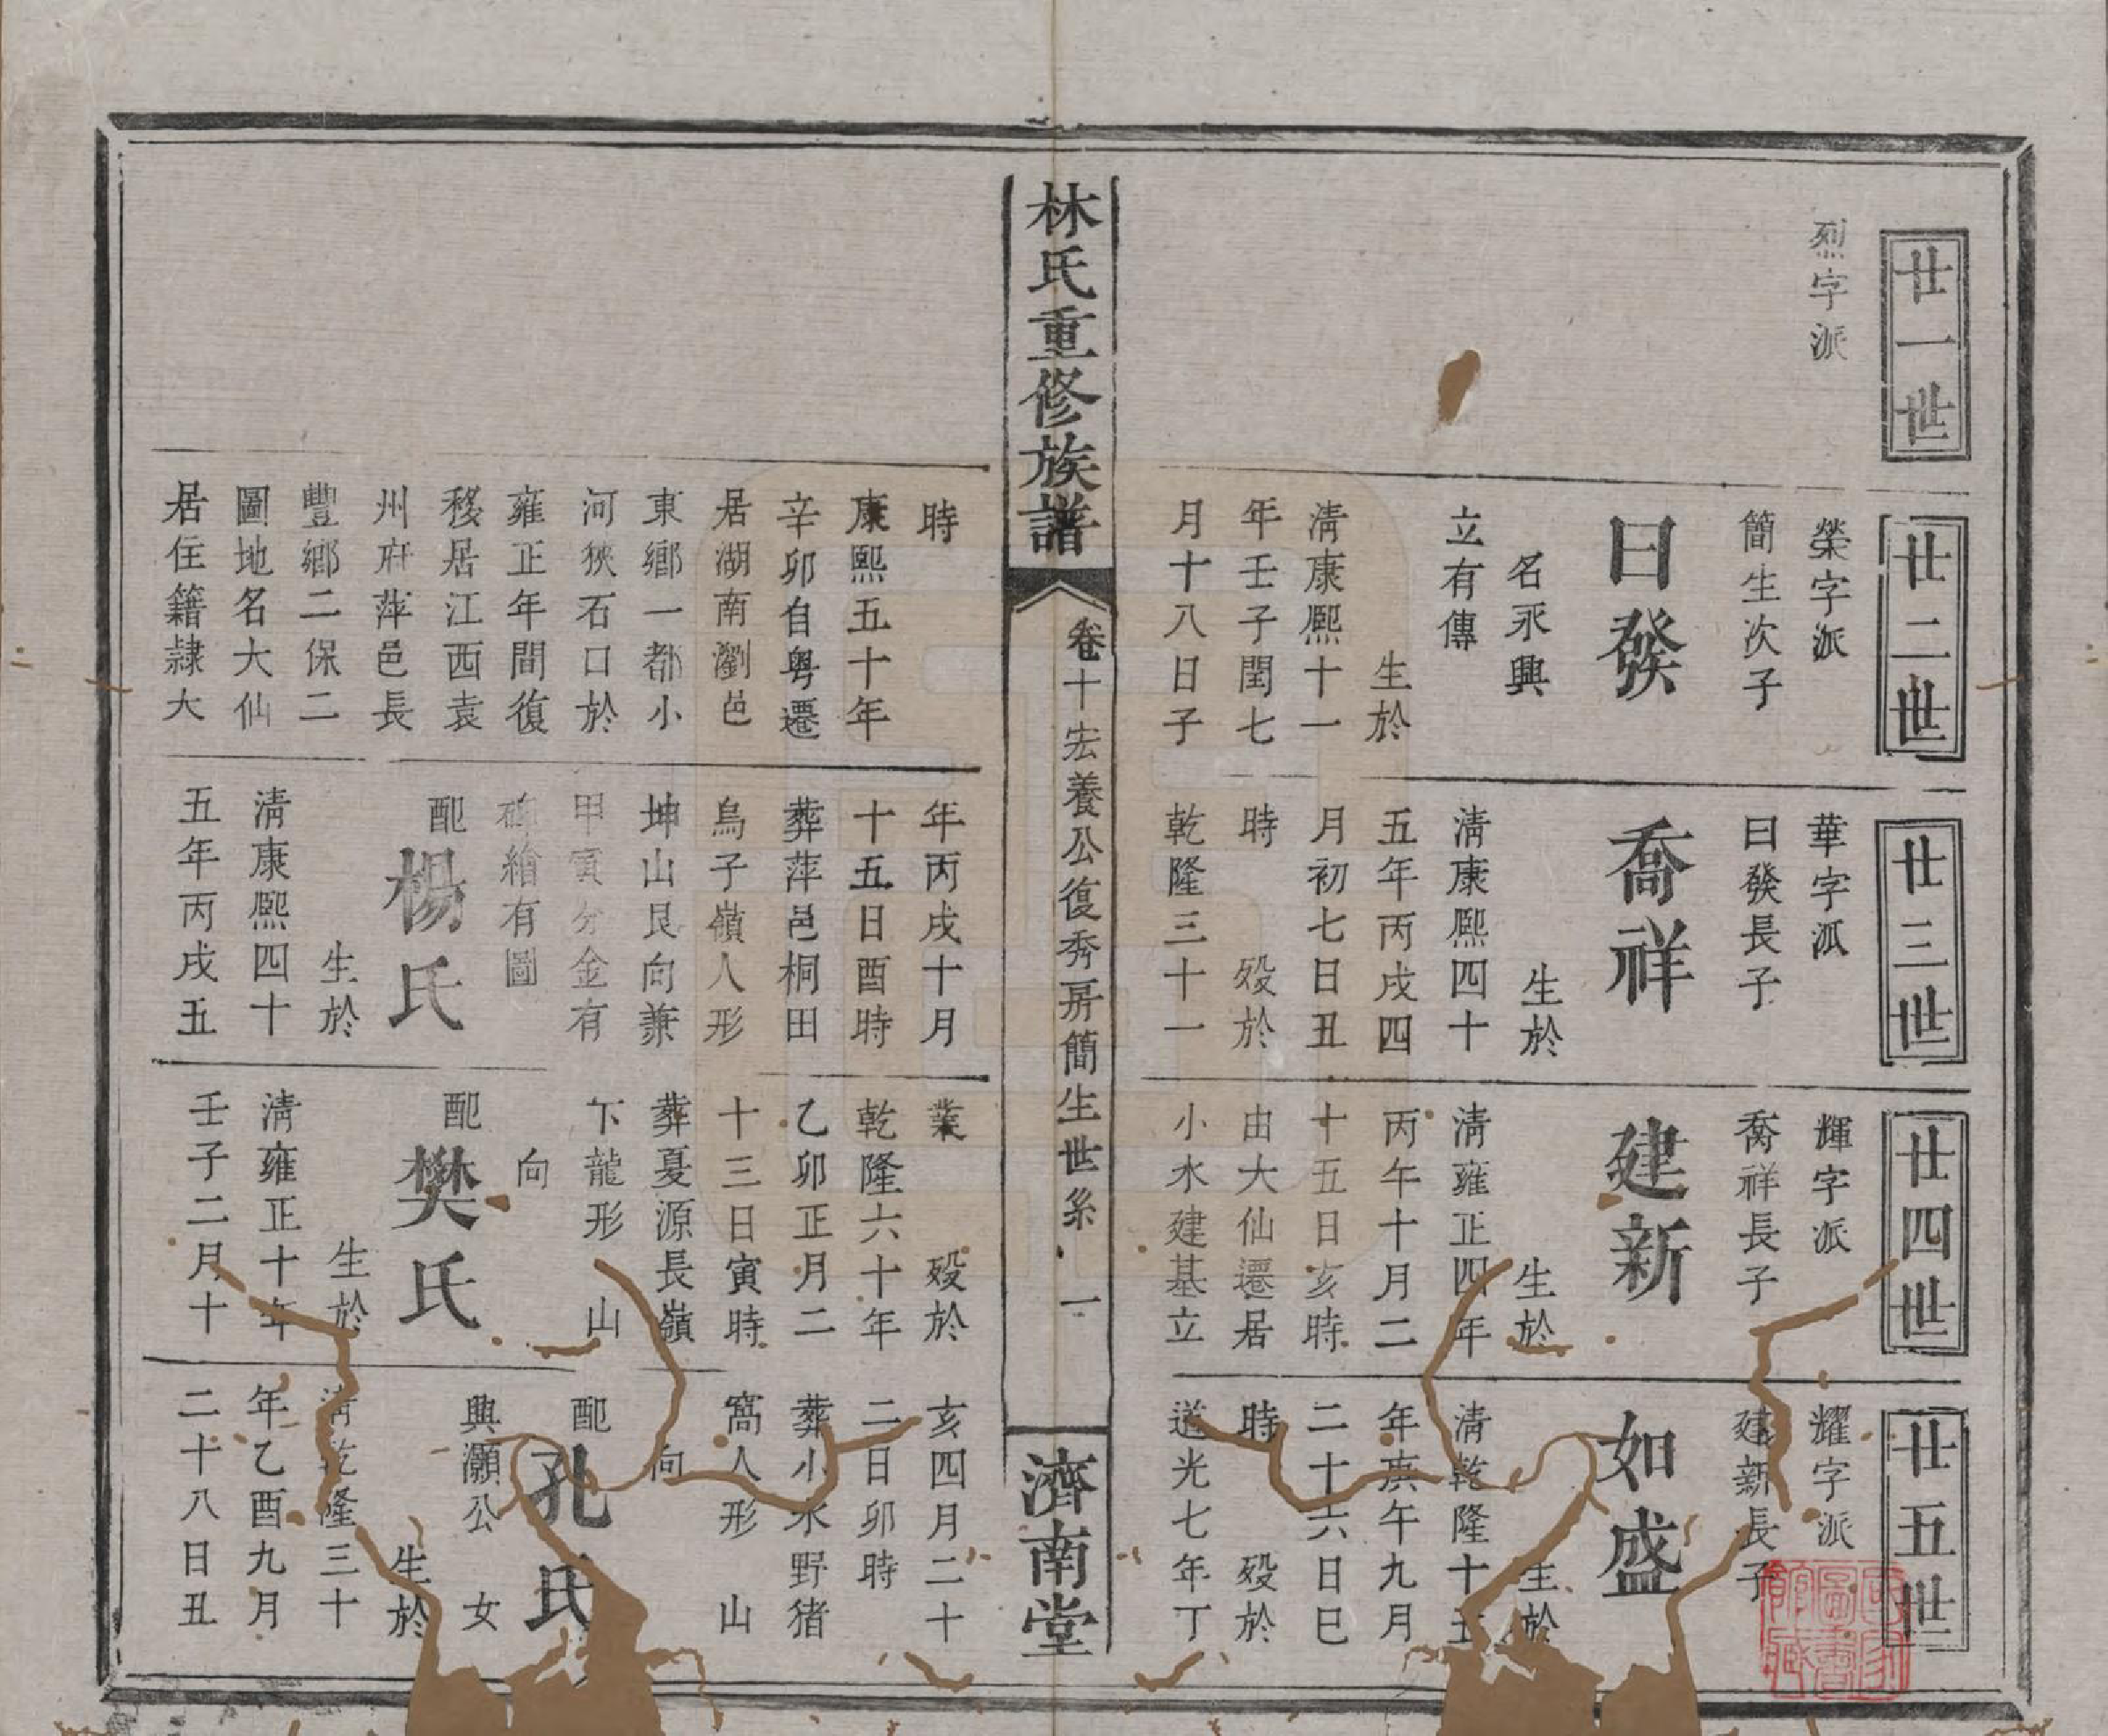 廿一世
烈字派
廿二世
榮字派
簡生次子
曰發
名永興
立有傳
生於
清康熙十一
年壬子閏七
月十八日子
廿三世
華字派
曰發長子
喬祥
生於
清康熙四十
五年丙戌四
月初七日丑
時 歿於
乾隆三十一
廿四世
輝字派
喬祥長子
建新
生於
清雍正四年
丙午十月二
十五日亥時
由大仙遷居
小水建基立
廿五世
耀字派
建新長子
如盛
生於
清乾隆十五
年庚午九月
二十六日巳
時 歿於
道光七年丁
林氏重修族譜
卷十宏養公復秀房簡生世系 一
濟南堂
時
康熙五十年
辛卯自粵遷
居湖南瀏邑
東鄉一都小
河狹石口於
雍正年間復
移居江西袁
州府萍邑長
豐鄉二保二
圖地名大仙
居住籍隸大
年丙戌十月
十五日酉時
葬萍邑桐田
烏子嶺人形
坤山艮向兼
甲寅分金有
碑繪有圖
配楊氏
生於
清康熙四十
五年丙戌五
業 歿於
乾隆六十年
乙卯正月二
十三日寅時
葬戛源長嶺
下龍形 山
向
配樊氏
生於
清雍正十年
壬子二月十
亥四月二十
二日卯時
葬小水野猪
窩人形 山
向
配孔氏
興灝公 女
生於
清乾隆三十
年乙酉九月
二十八日丑
國家圖書館藏